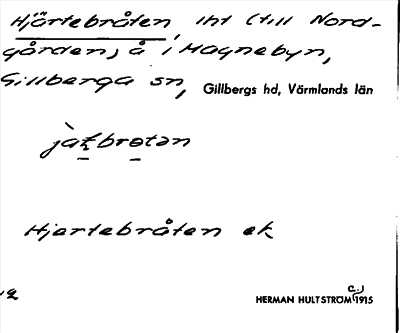 Hjärtebråten, lht (till Nord-
gården) å i Magnebyn,
Gillberga sn,
Gillbergs hd, Värmlands län
Hjertebråten ek
HERMAN HULTSTRÖM 1915